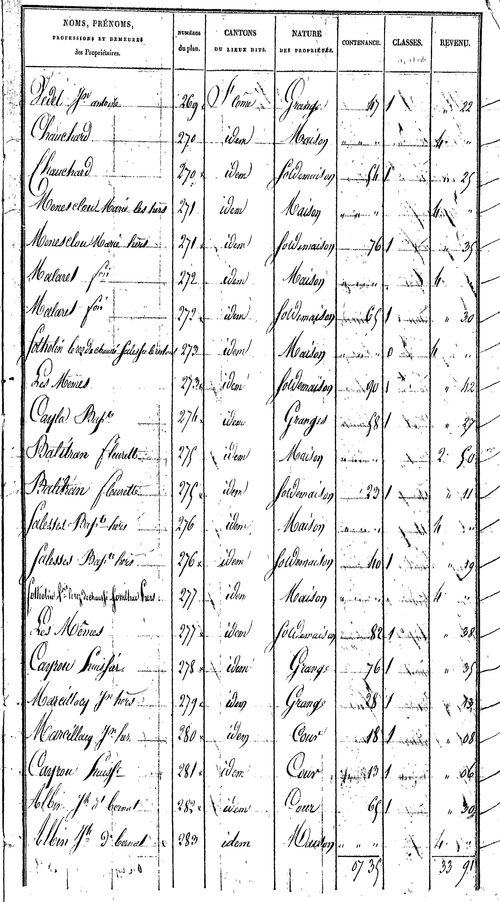 NOMS, PRÉNOMS, PROFESSIONS ET DEMEURES des Propriétaires. NUMÉROS du plan. CANTONS OU LIEUX DITS. NATURE DES PROPRIÉTÉS. CONTENANCE. CLASSES. REVENU.
Fedel Jn antoine 269 St Come Grange 47 1 " 22
Chauchard 270 idem Maison " " " 4 "
Chauchard 270 idem sol de maison 54 1 " 25
Monesclou Marie les hérs 271 idem Maison " " " 4 "
Monesclou Marie hérs 271 idem sol de maison 76 1 " 35
Malaret fois 272 idem Maison " " " 4 "
Malaret fois 272 idem sol de maison 65 1 " 30
273 idem Maison " " 0 4 "
Les Mêmes 273 idem sol de maison 90 1 " 42
Cayla Bapte 274 idem Grange 58 1 " 27
Balitran fleurette 275 idem Maison " " " 2 50
Balitran fleurette 275 idem sol de maison 23 1 " 11
Salesses Bapte hérs 276 idem Maison " " " 4 "
Salesses Bapte hérs 276 idem sol de maison 40 1 " 19
277 idem Maison " " " 4 "
Les Mêmes 277 idem sol de maison 82 1 " 38
Cayrou huissier 278 idem Grange 76 1 " 35
Marcillacy Jn hérs 279 idem Grange 28 1 " 13
Marcillacy Jn hers 280 idem Cour 18 1 " 08
Cayrou huissr 281 idem Cour 13 1 " 06
Albin Jh dt bernat 282 idem Cour 65 1 " 30
Albin Jh dt bernat 283 idem Maison " " " 4 "
07 35 33 91